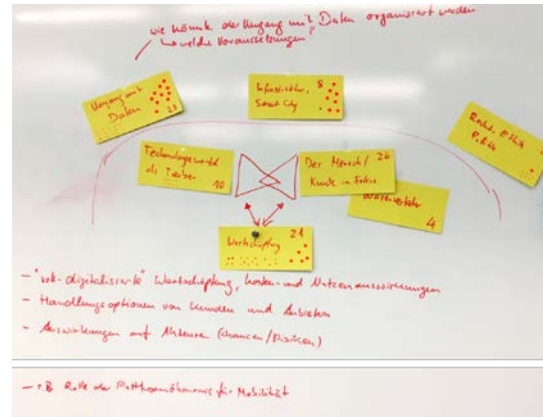 wie könnte der Umgang mit Daten organisiert werden
↳ welche Voraussetzungen?
Umgang mit
Daten
28
Infrastruktur,
Smart City
8
Recht, Ethik
Politik
Technologiewandel
als Treiber
10
Der Mensch/
Kunde im Fokus
26
Warenverkehr
4
Wertschöpfung
21
- "voll-digitalisierte" Wertschöpfung, Kosten- und Nutzenauswirkungen
- Handlungsoptionen von Kunden und Anbietern
- Auswirkungen auf Akteure (Chancen/Risiken)
- z.B. Rolle der Plattformökonomie für Mobilität